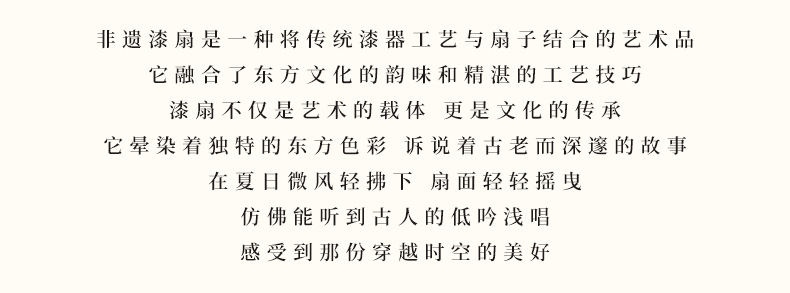 非遗漆扇是一种将传统漆器工艺与扇子结合的艺术品
它融合了东方文化的韵味和精湛的工艺技巧
漆扇不仅是艺术的载体 更是文化的传承
它晕染着独特的东方色彩 诉说着古老而深邃的故事
在夏日微风轻拂下 扇面轻轻摇曳
仿佛能听到古人的低吟浅唱
感受到那份穿越时空的美好